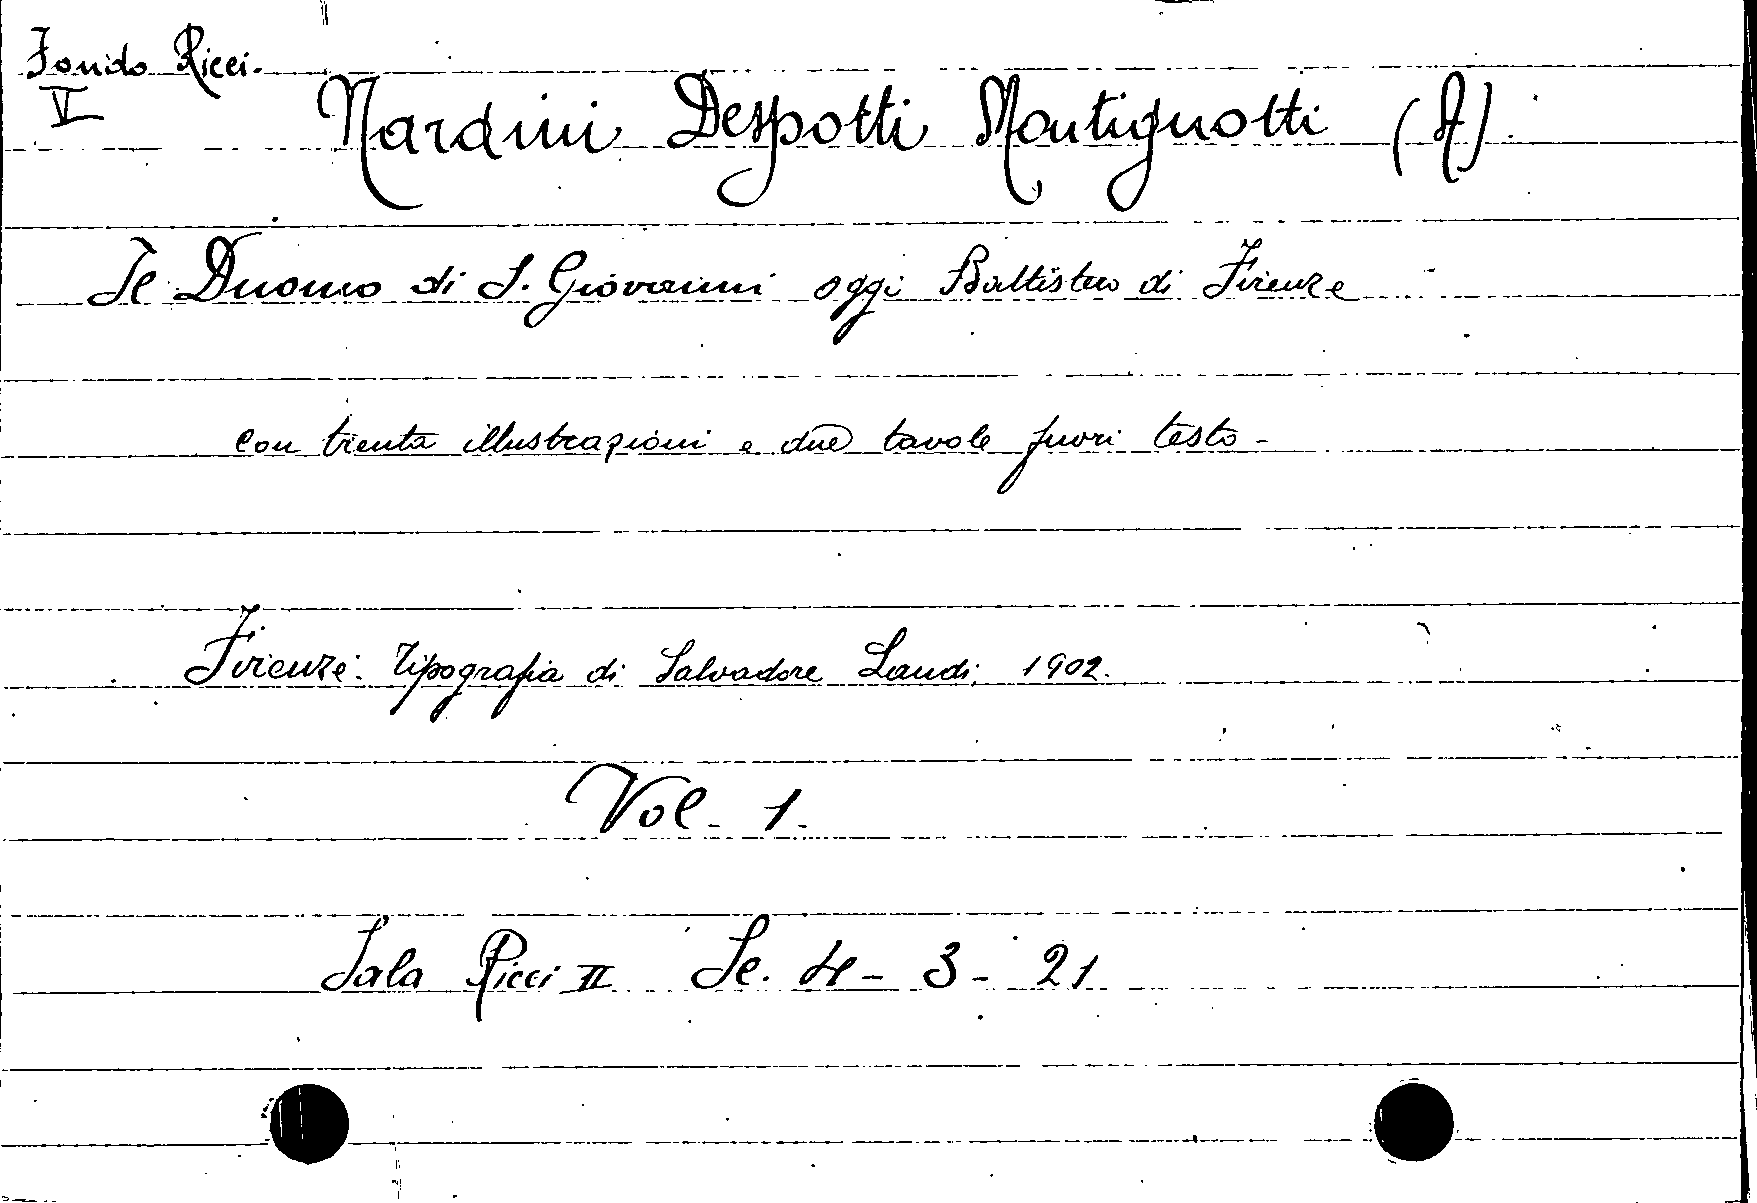 Fondo Ricci.
V Nardini Despotti Montignotti (A).
Il Duomo di S. Giovanni oggi Battistero di Firenze
con trenta illustrazioni e due tavole fuori testo -
Firenze. Tipografia di Salvadore Landi, 1902.
Vol. 1.
Sala Ricci II Sc. 4 - 3 - 21